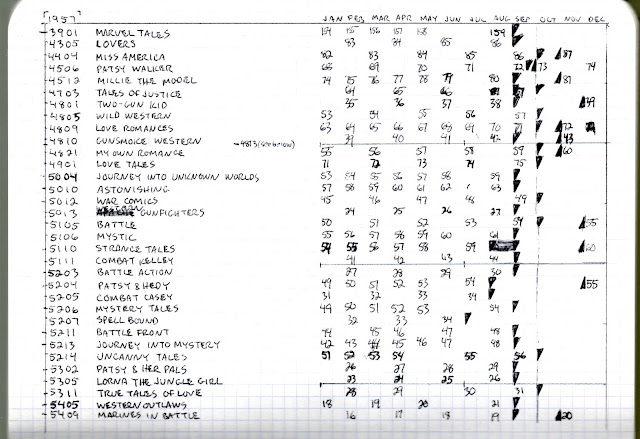 [1957] JAN FEB MAR APR MAY JUN JUL AUG SEP OCT NOV DEC
3901 MARVEL TALES 154 155 156 157 158 159
4305 LOVERS 83 84 85 86
4404 MISS AMERICA 82 83 84 85 86 87
4506 PATSY WALKER 68 69 70 71 72 73 74
4512 MILLIE THE MODEL 74 75 76 77 78 79 80 81
4703 TALES OF JUSTICE 64 65 66
4801 TWO-GUN KID 35 36 37 38
4805 WILD WESTERN 53 54 55 56 57
4809 LOVE ROMANCES 63 64 65 66 67 68 69 70 71 72
4810 GUNSMOKE WESTERN 4813 (see below) 39 40 41 42 43
4821 MY OWN ROMANCE 55 56 57 58 59 60
4901 LOVE TALES 71 72 73 74 75
5004 JOURNEY INTO UNKNOWN WORLDS 53 54 55 56 57 58 59
5010 ASTONISHING 57 58 59 60 61 62 63
5012 WAR COMICS 45 46 47 48 49
5013 WESTERN GUNFIGHTERS 24 25 26 27
5105 BATTLE 50 51 52 53 54 55
5106 MYSTIC 55 56 57 58 59 60 61
5110 STRANGE TALES 54 55 56 57 58 59 60
5111 COMBAT KELLEY 41 42 43 44
5203 BATTLE ACTION 27 28 29 30
5204 PATSY & HEDY 49 50 51 52 53 54 55
5205 COMBAT CASEY 31 32 33 34
5206 MYSTERY TALES 49 50 51 52 53 54
5207 SPELL BOUND 32 33 34
5211 BATTLE FRONT 44 45 46 47 48
5213 JOURNEY INTO MYSTERY 42 43 44 45 46 47 48
5214 UNCANNY TALES 51 52 53 54 55 56
5302 PATSY & HER PALS 26 27 28 29
5305 LORNA THE JUNGLE GIRL 23 24 25 26
5311 TRUE TALES OF LOVE 28 29 30 31
5405 WESTERN OUTLAWS 18 19 20 21
5409 MARINES IN BATTLE 16 17 18 19 20